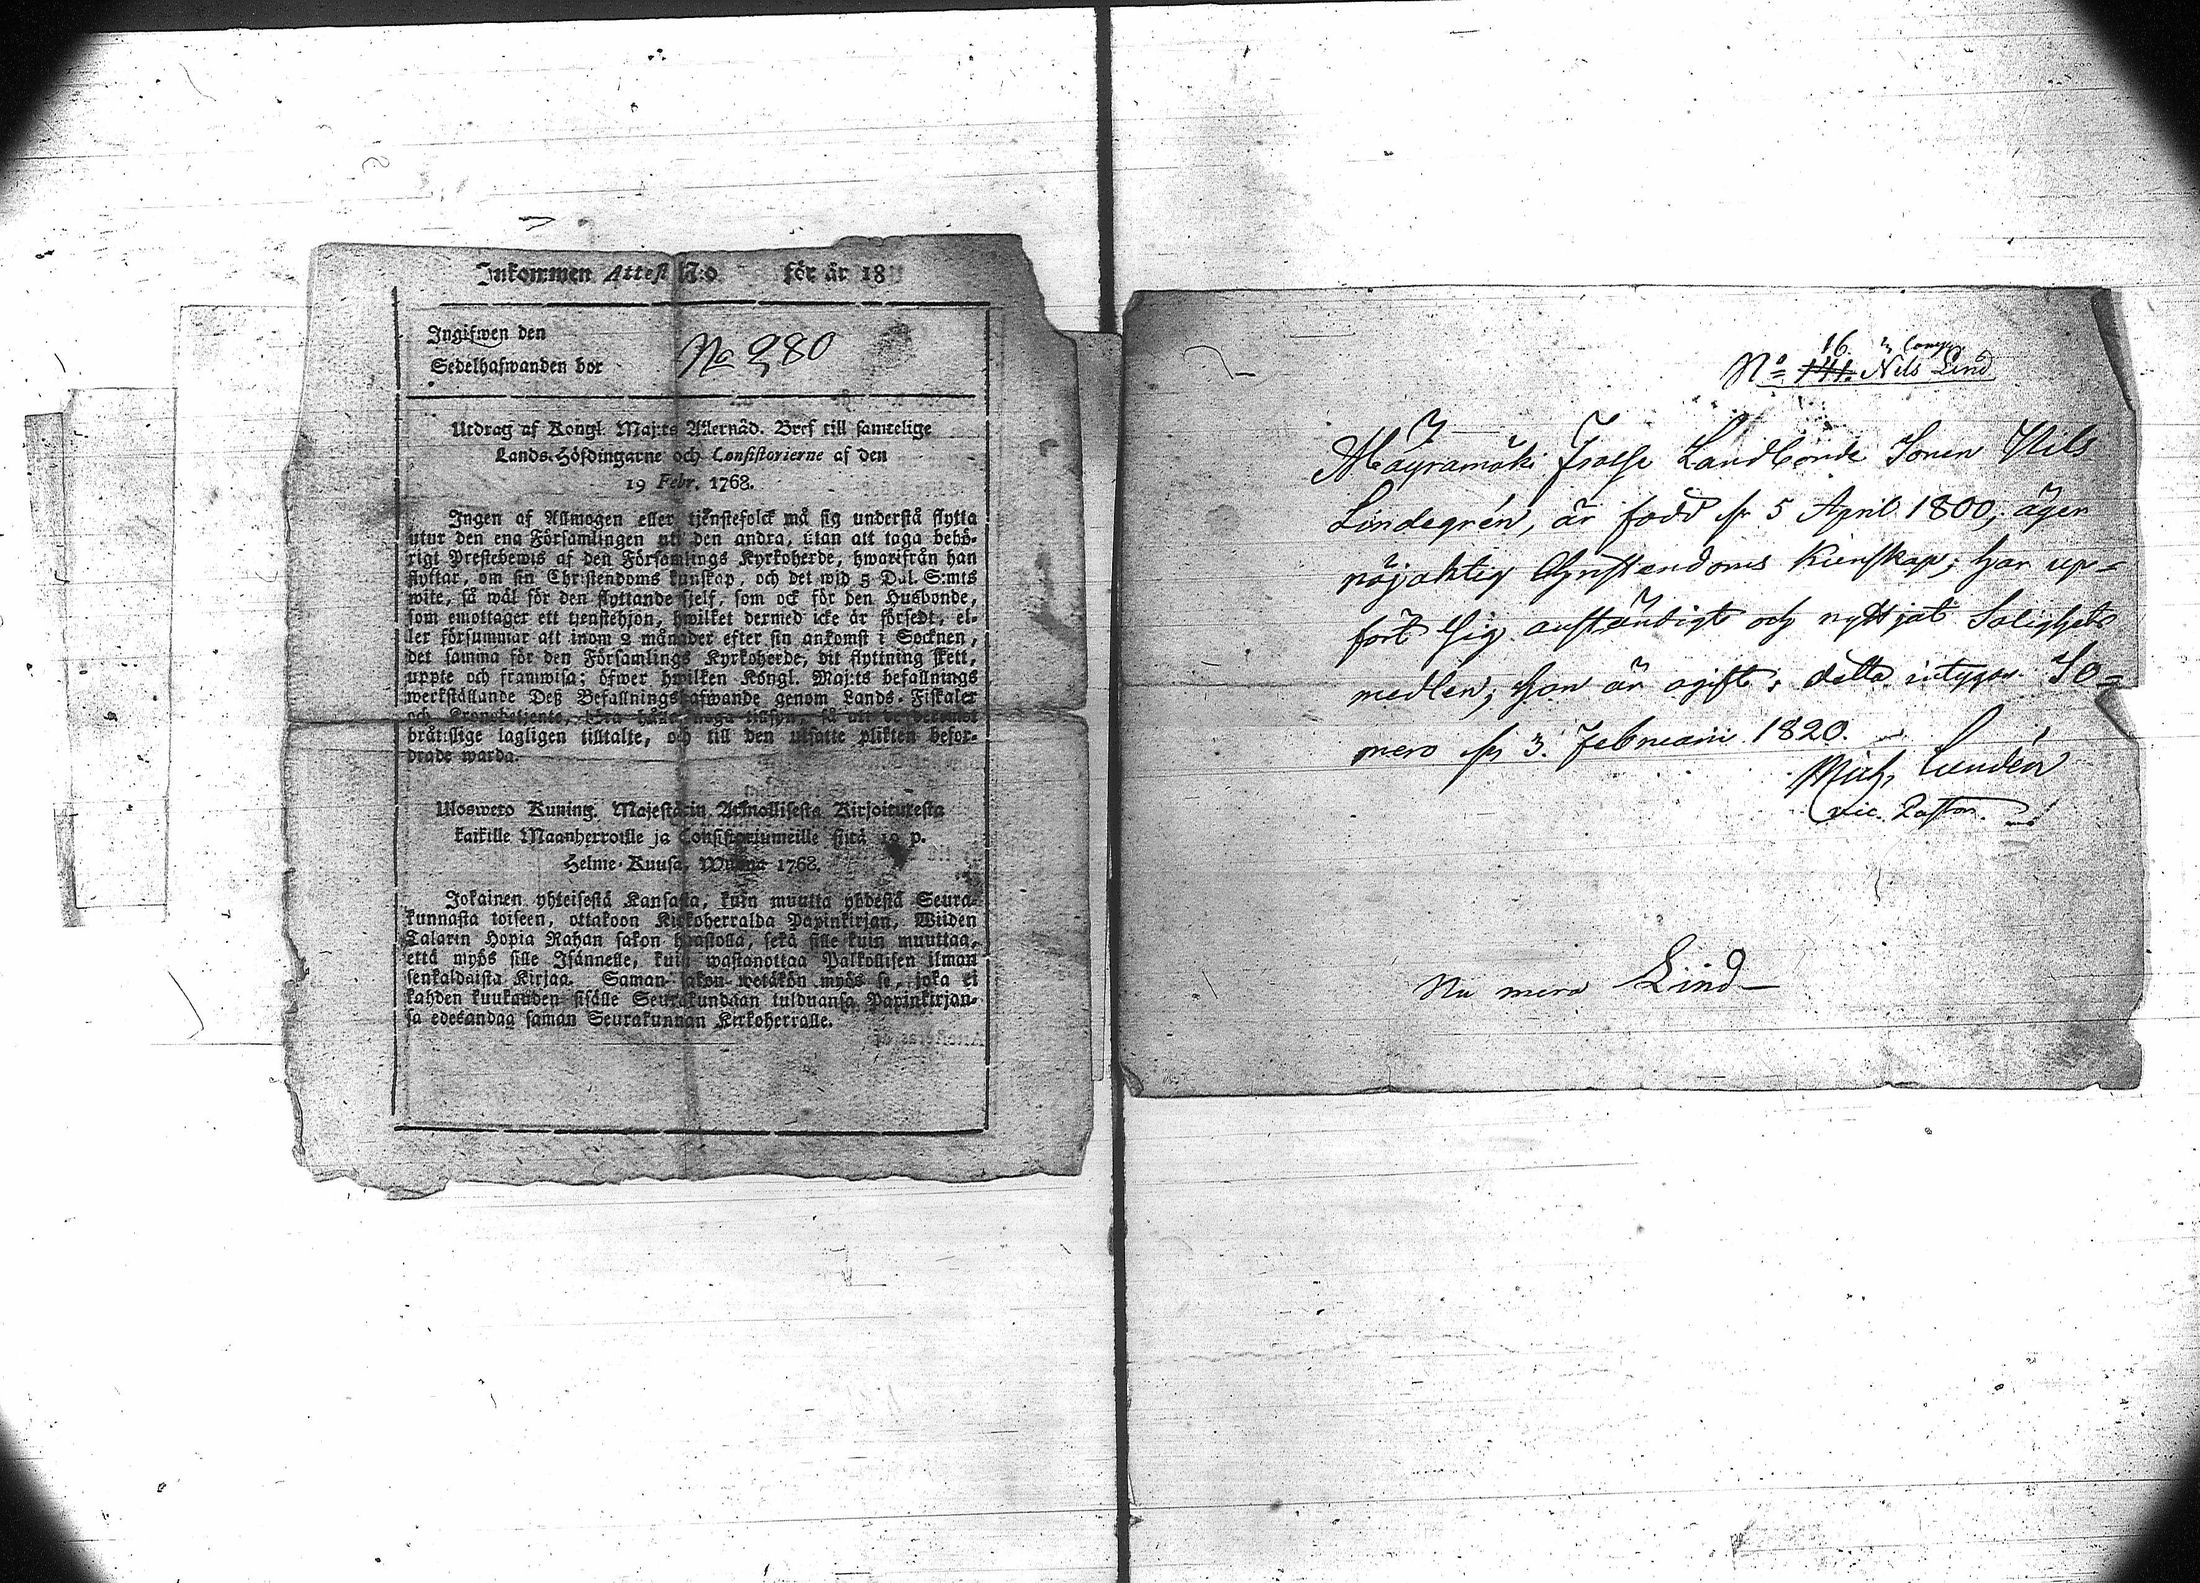 Inkommen Attest N:o för år 18
Ingifwen den
Sedelhafwanden bor
No 280
Utdrag af Kongl. Maj:ts Allernåd. Bref till samtelige
Lands-Höfdingarne och Consistorierne af den
19 Febr. 1768.
Ingen af Allmogen eller tjenstefolck må sig understå flytta
utur den ena Församlingen uti den andra, utan att taga behö-
rigt Prestebewis af den Församlings Kyrkoherde, hwarifrån han
flyttar, om sin Christendoms kunskap, och det wid 5 Dal. S:mts
wite, så wäl för den flyttande sjelf, som ock för den Husbonde,
som emottager ett tjenstehjon, hwilket dermed icke är försedt, el-
ler försummar att inom 2 månader efter sin ankomst i Socknen,
det samma för den Församlings Kyrkoherde, dit flyttning skett,
uppte och framwisa; öfwer hwilken Kongl. Maj:ts befallnings
werkställande Deß Befallningshafwande genom Lands-Fiskaler
och Kronobetjente, låta hålla noga tilsyn, så att de
bråtslige lagligen tilltalte, och till den utsatte plikten befor-
drade warda.
Uloswero Kuning. Majestätin Armollisesta Kirjoituresta
kaikille Maanherroille ja Consistoriumeille siitä 19 p.
Helme-Kuusa, Wuonna 1768.
Jokainen yhteisestä Kansasta, kuin muutta yhdestä Seura-
kunnasta toiseen, ottakoon Kirkoherralda Papinkirjan, Wiiden
Talarin Hopia Rahan sakon haastolla, sekä sille kuin muuttaa,
että myös sille Isännelle, kuin wastanottaa Palkollisen ilman
senkaldaista Kirjaa. Saman sakon wetäkön myös se, joka ei
kahden kuukauden sisälle Seurakundaan tulduansa Papinkirjan-
sa edesandaa saman Seurakunnan Kirkoherralle.
16
No 141. Nils Lind
Mäyramäki Landbonde Sonen Nils
Lindegrén, är född d. 5 April 1800; äger
nöjaktig Christendoms Kunskap; har up-
fört sig anständigt och nyttjat Salighets
medlen; han är ogift; detta intygas. So-
mero d. 3. Februarii 1820.
Mich. Lundén
vic. Pastor.
Nu mera Lind